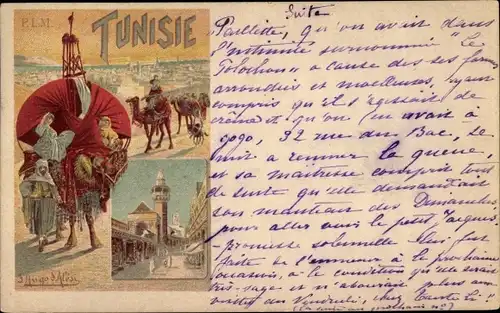 P.L.M.
TUNISIE
Suite
"Paillette, qu'on avait dans
l'intimité surnommée "Le
" à cause des ses formes
arrondies et moelleuses, ayant
compris qu'il s'agissait de
crâne et qu'on en avait à
gogo, 32 rue du Bac, se
mit à remuer la queue,
et sa maitresse comprit tout
de suite qu'elle demandait
son manteau des Dimanches
pour aller voir le petit Jacques.
promesse solennelle fut
faite de l'emmener à la prochaine
, à la condition qu'elle serait
très-sage et n'aboierait plus aux
visites du Vendredi, chez
(la suite au prochain no)
Hugo d'Alési